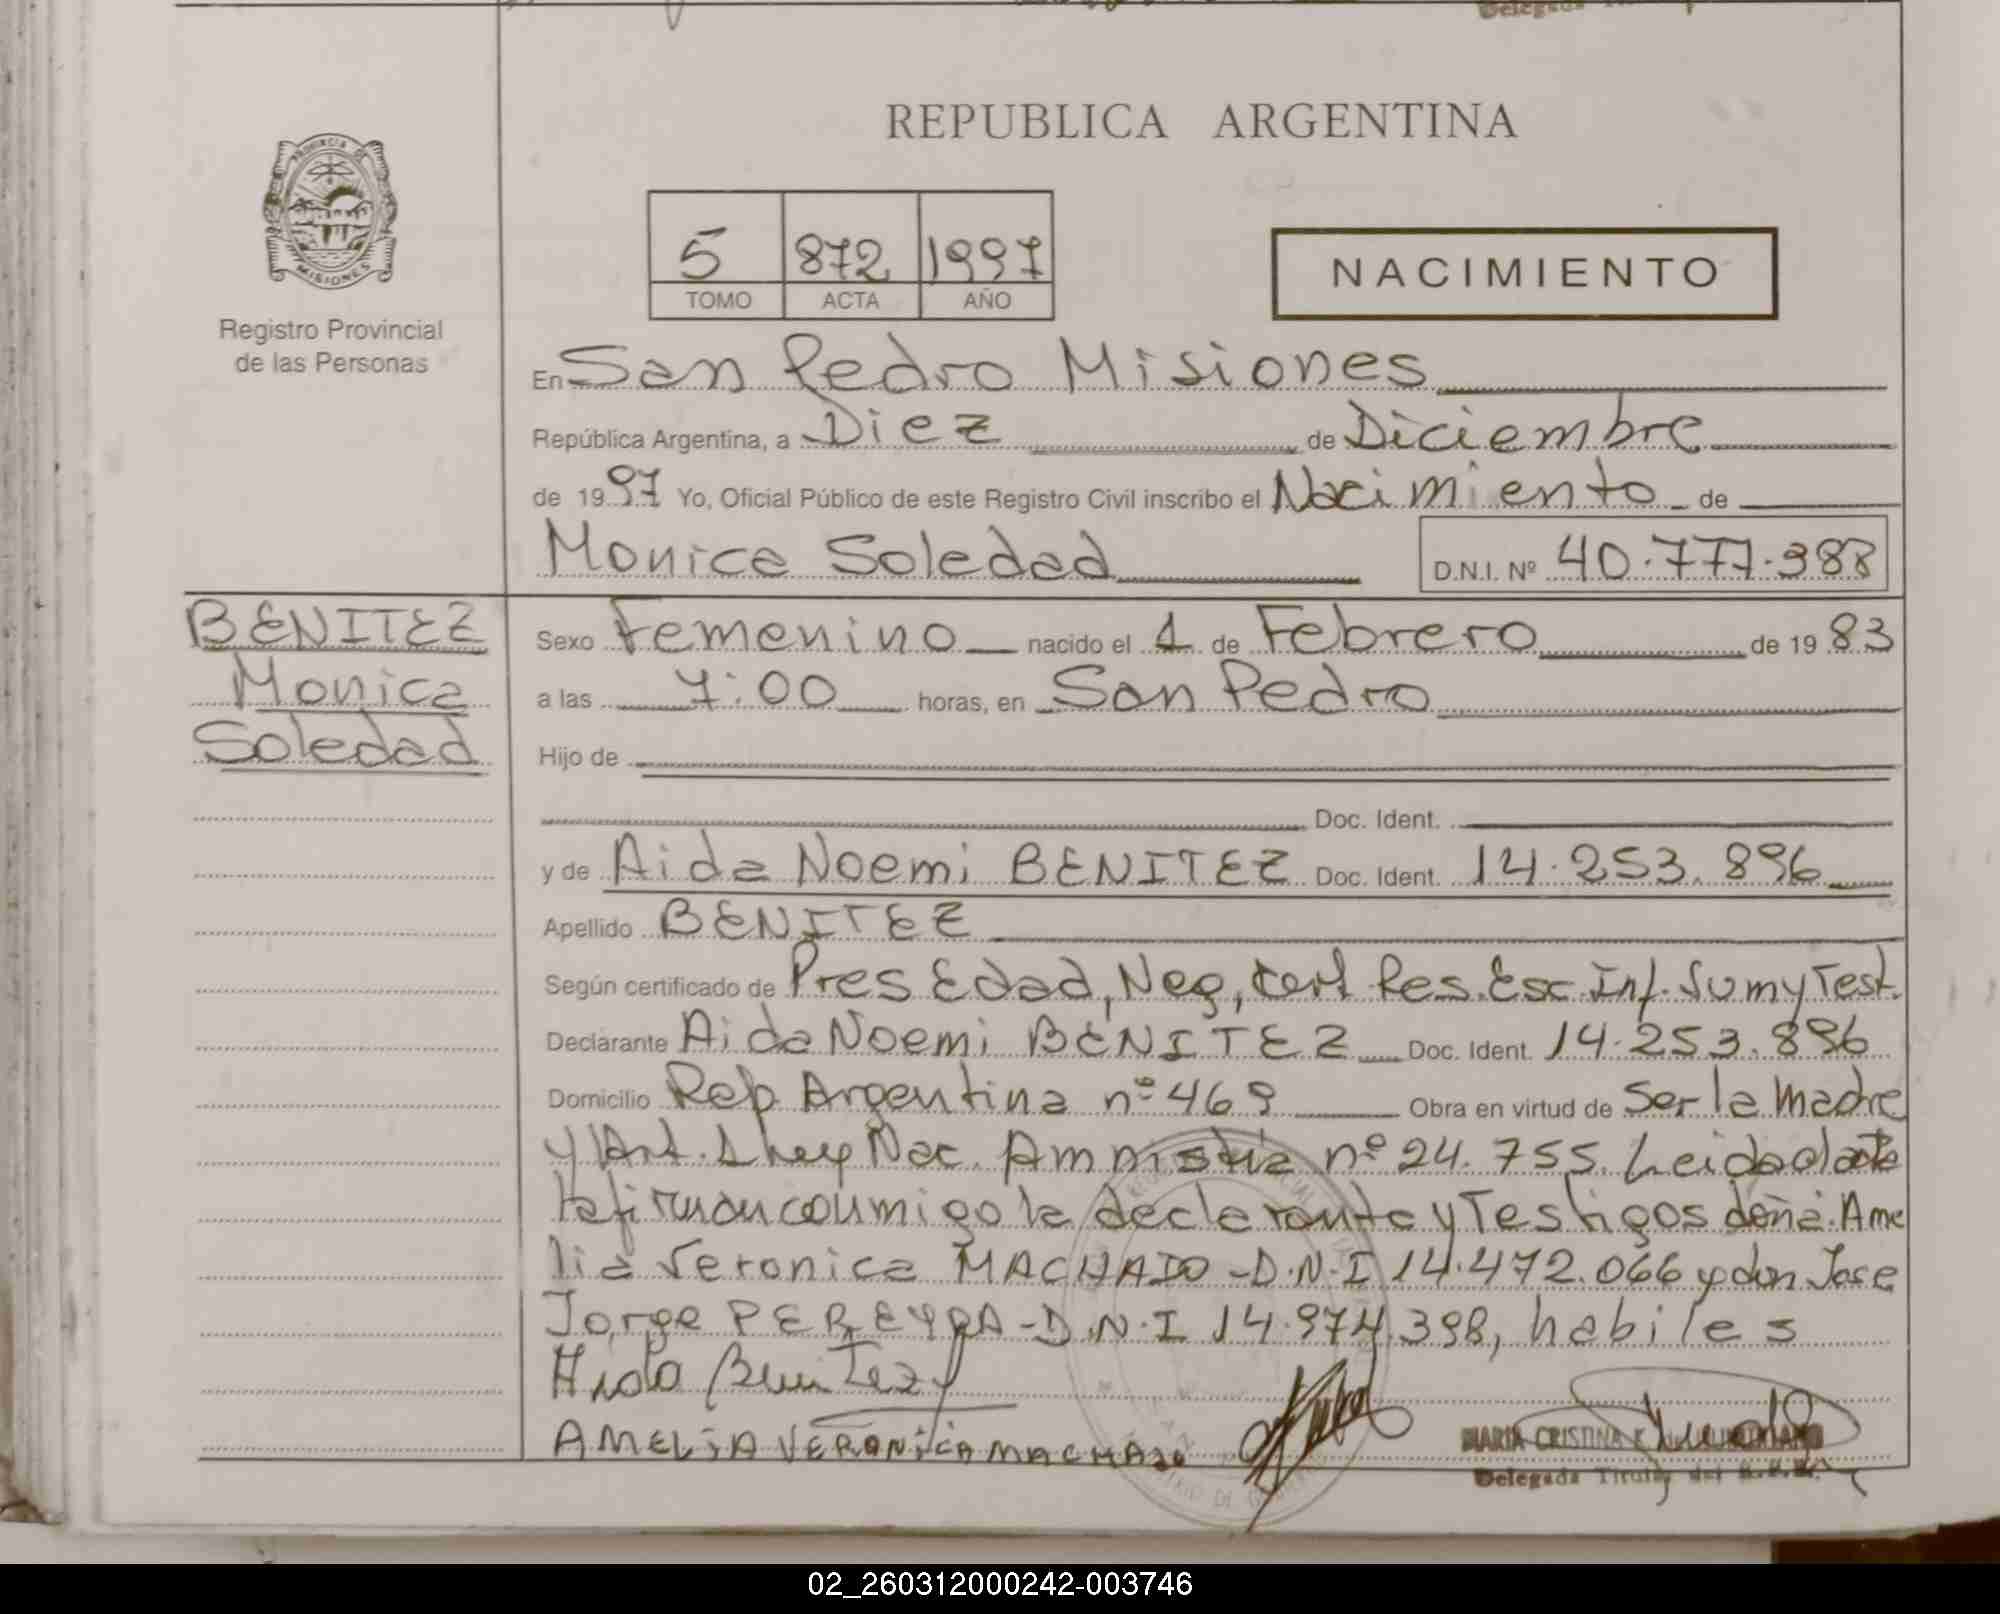 REPUBLICA ARGENTINA
PROVINCIA DE
MISIONES
Registro Provincial
de las Personas
5 872 1997
TOMO ACTA AÑO
NACIMIENTO
En San Pedro Misiones
República Argentina, a Diez de Diciembre
de 1997 Yo, Oficial Público de este Registro Civil inscribo el Nacimiento de
Monica Soledad D.N.I. Nº 40.777.388
BENITEZ
Monica
Soledad
Sexo Femenino nacido el 1 de Febrero de 1983
a las 7:00 horas, en San Pedro
Hijo de
Doc. Ident.
y de Aida Noemi BENITEZ Doc. Ident. 14.253.896
Apellido BENITEZ
Según certificado de Pres Edad, Neg, Cert Res. Esc Inf. Sum y Test.
Declarante Aida Noemi BENITEZ Doc. Ident. 14.253.896
Domicilio Rep. Argentina nº 469 Obra en virtud de Ser la Madre
y Art. 1 Ley Nac. Amnistia nº 24.755. Leida el acta
la firman conmigo la declarante y Testigos doña Ame
lia Veronica MACHADO - D.N.I 14.472.066 y don Jose
Jorge PEREYRA - D.N.I 14.974.398, habiles
Aida Benitez
AMELIA VERONICA MACHADO
MARIA CRISTINA
Delegada Titular del R.P.P.
02_260312000242-003746